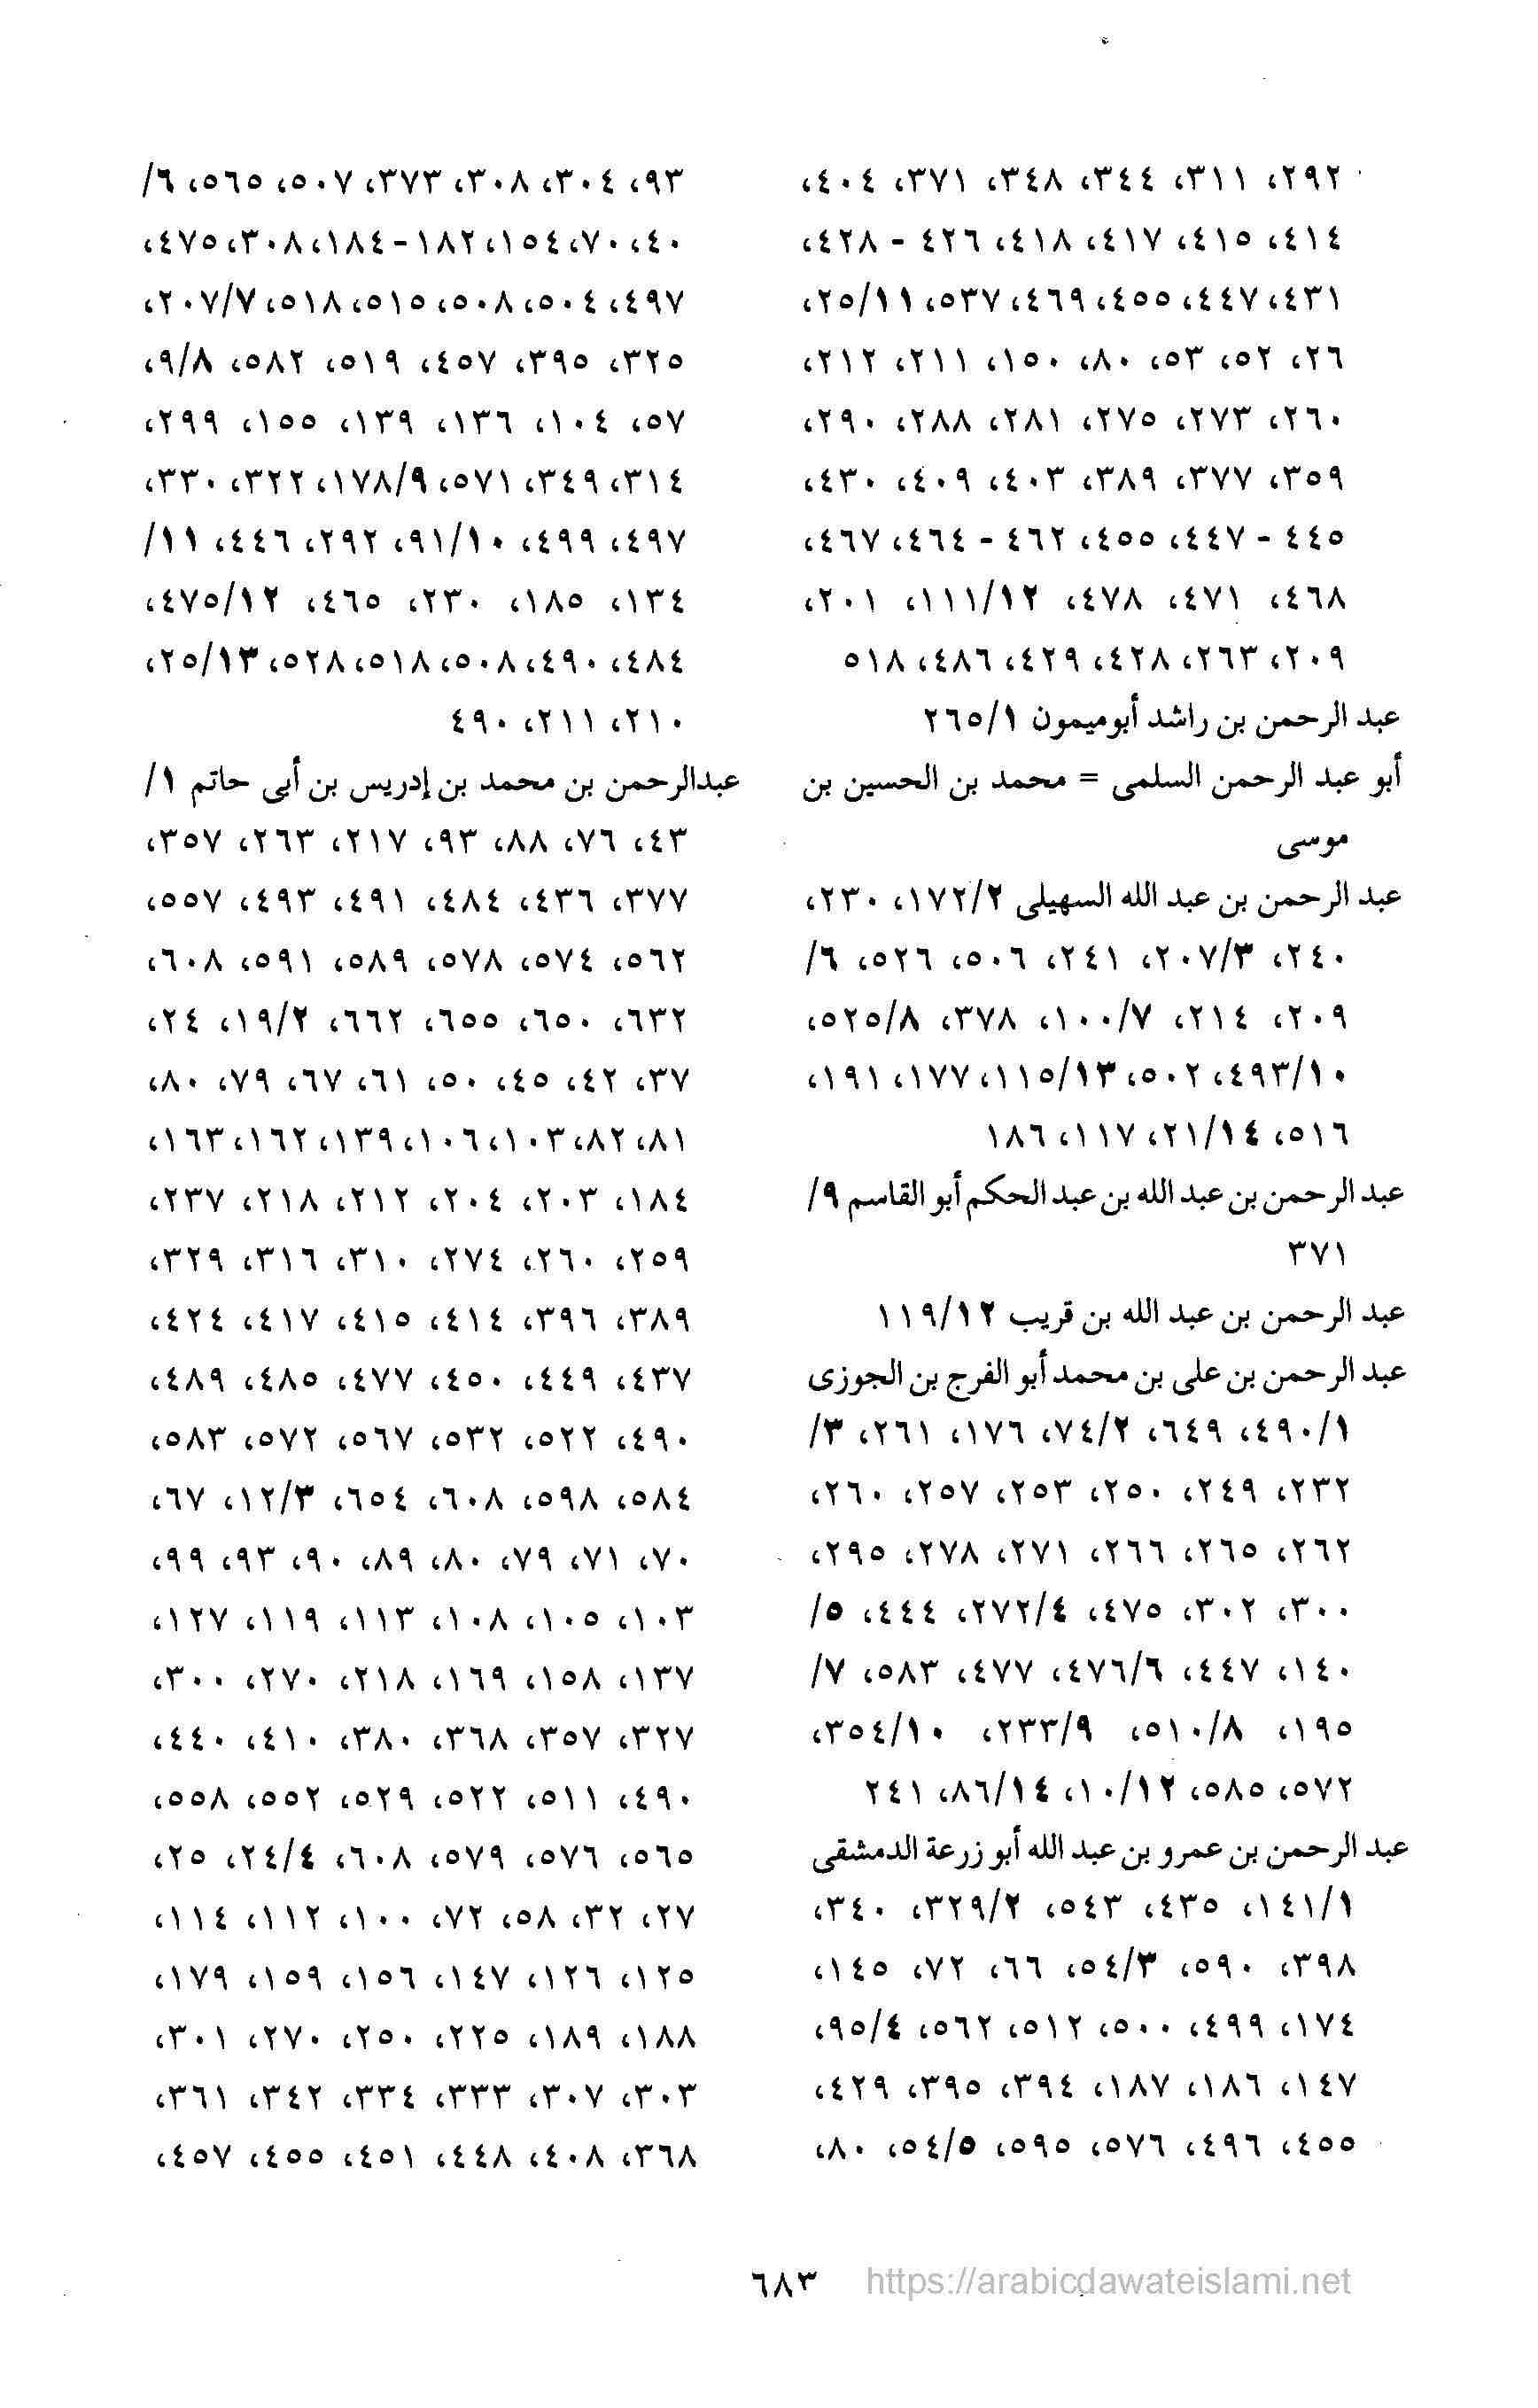 ٢٩٢، ٣١١، ٣٤٤، ٣٤٨، ٣٧١، ٤٠٤،
٤١٤، ٤١٥، ٤١٧، ٤١٨، ٤٢٦ - ٤٢٨،
٤٣١، ٤٤٧، ٤٥٥، ٤٦٩، ٥٣٧، ٢٥/١١،
٢٦، ٥٢، ٥٣، ٨٠، ١٥٠، ٢١١، ٢١٢،
٢٦٠، ٢٧٣، ٢٧٥، ٢٨١، ٢٨٨، ٢٩٠،
٣٥٩، ٣٧٧، ٣٨٩، ٤٠٣، ٤٠٩، ٤٣٠،
٤٤٥ - ٤٤٧، ٤٥٥، ٤٦٢ - ٤٦٤، ٤٦٧،
٤٦٨، ٤٧١، ٤٧٨، ١١١/١٢، ٢٠١،
٢٠٩، ٢٦٣، ٤٢٨، ٤٢٩، ٤٨٦، ٥١٨
عبد الرحمن بن راشد أبوميمون ٢٦٥/١
أبو عبد الرحمن السلمى = محمد بن الحسين بن
موسى
عبد الرحمن بن عبد الله السهيلى ١٧٢/٢، ٢٣٠،
٢٤٠، ٢٠٧/٣، ٢٤١، ٥٠٦، ٥٢٦، ٦/
٢٠٩، ٢١٤، ١٠٠/٧، ٣٧٨، ٥٢٥/٨،
٤٩٣/١٠، ٥٠٢، ١١٥/١٣، ١٧٧، ١٩١،
٥١٦، ٢١/١٤، ١١٧، ١٨٦
عبد الرحمن بن عبد الله بن عبد الحكم أبو القاسم ٩/
٣٧١
عبد الرحمن بن عبد الله بن قريب ١١٩/١٢
عبد الرحمن بن على بن محمد أبو الفرج بن الجوزى
٤٩٠/١، ٦٤٩، ٧٤/٢، ١٧٦، ٢٦١، ٣/
٢٣٢، ٢٤٩، ٢٥٠، ٢٥٣، ٢٥٧، ٢٦٠،
٢٦٢، ٢٦٥، ٢٦٦، ٢٧١، ٢٧٨، ٢٩٥،
٣٠٠، ٣٠٢، ٤٧٥، ٢٧٢/٤، ٤٤٤، ٥/
١٤٠، ٤٤٧، ٤٧٦/٦، ٤٧٧، ٥٨٣، ٧/
١٩٥، ٥١٠/٨، ٢٣٣/٩، ٣٥٤/١٠،
٥٧٢، ٥٨٥، ١٠/١٢، ٨٦/١٤، ٢٤١
عبد الرحمن بن عمرو بن عبد الله أبو زرعة الدمشقى
١٤١/١، ٤٣٥، ٥٤٣، ٣٢٩/٢، ٣٤٠،
٣٩٨، ٥٩٠، ٥٤/٣، ٦٦، ٧٢، ١٤٥،
١٧٤، ٤٩٩، ٥٠٠، ٥١٢، ٥٦٢، ٩٥/٤،
١٤٧، ١٨٦، ١٨٧، ٣٩٤، ٣٩٥، ٤٢٩،
٤٥٥، ٤٩٦، ٥٧٦، ٥٩٥، ٥٤/٥، ٨٠،
٩٣، ٣٠٤، ٣٠٨، ٣٧٣، ٥٠٧، ٥٦٥، ٦/
٤٠، ٧٠، ١٥٤، ١٨٢-١٨٤، ٣٠٨، ٤٧٥،
٤٩٧، ٥٠٤، ٥٠٨، ٥١٥، ٥١٨، ٢٠٧/٧،
٣٢٥، ٣٩٥، ٤٥٧، ٥١٩، ٥٨٢، ٩/٨،
٥٧، ١٠٤، ١٣٦، ١٣٩، ١٥٥، ٢٩٩،
٣١٤، ٣٤٩، ٥٧١، ١٧٨/٩، ٣٢٢، ٣٣٠،
٤٩٧، ٤٩٩، ٩١/١٠، ٢٩٢، ٤٤٦، ١١/
١٣٤، ١٨٥، ٢٣٠، ٤٦٥، ٤٧٥/١٢،
٤٨٤، ٤٩٠، ٥٠٨، ٥١٨، ٥٢٨، ٢٥/١٣،
٢١٠، ٢١١، ٤٩٠
عبدالرحمن بن محمد بن إدريس بن أبى حاتم ١/
٤٣، ٧٦، ٨٨، ٩٣، ٢١٧، ٢٦٣، ٣٥٧،
٣٧٧، ٤٣٦، ٤٨٤، ٤٩١، ٤٩٣، ٥٥٧،
٥٦٢، ٥٧٤، ٥٧٨، ٥٨٩، ٥٩١، ٦٠٨،
٦٣٢، ٦٥٠، ٦٥٥، ٦٦٢، ١٩/٢، ٢٤،
٣٧، ٤٢، ٤٥، ٥٠، ٦١، ٦٧، ٧٩، ٨٠،
٨١، ٨٢، ١٠٣، ١٠٦، ١٣٩، ١٦٢، ١٦٣،
١٨٤، ٢٠٣، ٢٠٤، ٢١٢، ٢١٨، ٢٣٧،
٢٥٩، ٢٦٠، ٢٧٤، ٣١٠، ٣١٦، ٣٢٩،
٣٨٩، ٣٩٦، ٤١٤، ٤١٥، ٤١٧، ٤٢٤،
٤٣٧، ٤٤٩، ٤٥٠، ٤٧٧، ٤٨٥، ٤٨٩،
٤٩٠، ٥٢٢، ٥٣٢، ٥٦٧، ٥٧٢، ٥٨٣،
٥٨٤، ٥٩٨، ٦٠٨، ٦٥٤، ١٢/٣، ٦٧،
٧٠، ٧١، ٧٩، ٨٠، ٨٩، ٩٠، ٩٣، ٩٩،
١٠٣، ١٠٥، ١٠٨، ١١٣، ١١٩، ١٢٧،
١٣٧، ١٥٨، ١٦٩، ٢١٨، ٢٧٠، ٣٠٠،
٣٢٧، ٣٥٧، ٣٦٨، ٣٨٠، ٤١٠، ٤٤٠،
٤٩٠، ٥١١، ٥٢٢، ٥٢٩، ٥٥٢، ٥٥٨،
٥٦٥، ٥٧٦، ٥٧٩، ٦٠٨، ٢٤/٤، ٢٥،
٢٧، ٣٢، ٥٨، ٧٢، ١٠٠، ١١٢، ١١٤،
١٢٥، ١٢٦، ١٤٧، ١٥٦، ١٥٩، ١٧٩،
١٨٨، ١٨٩، ٢٢٥، ٢٥٠، ٢٧٠، ٣٠١،
٣٠٣، ٣٠٧، ٣٣٣، ٣٣٤، ٣٤٢، ٣٦١،
٣٦٨، ٤٠٨، ٤٤٨، ٤٥١، ٤٥٥، ٤٥٧،
٦٨٣
https://arabicdawateislami.net